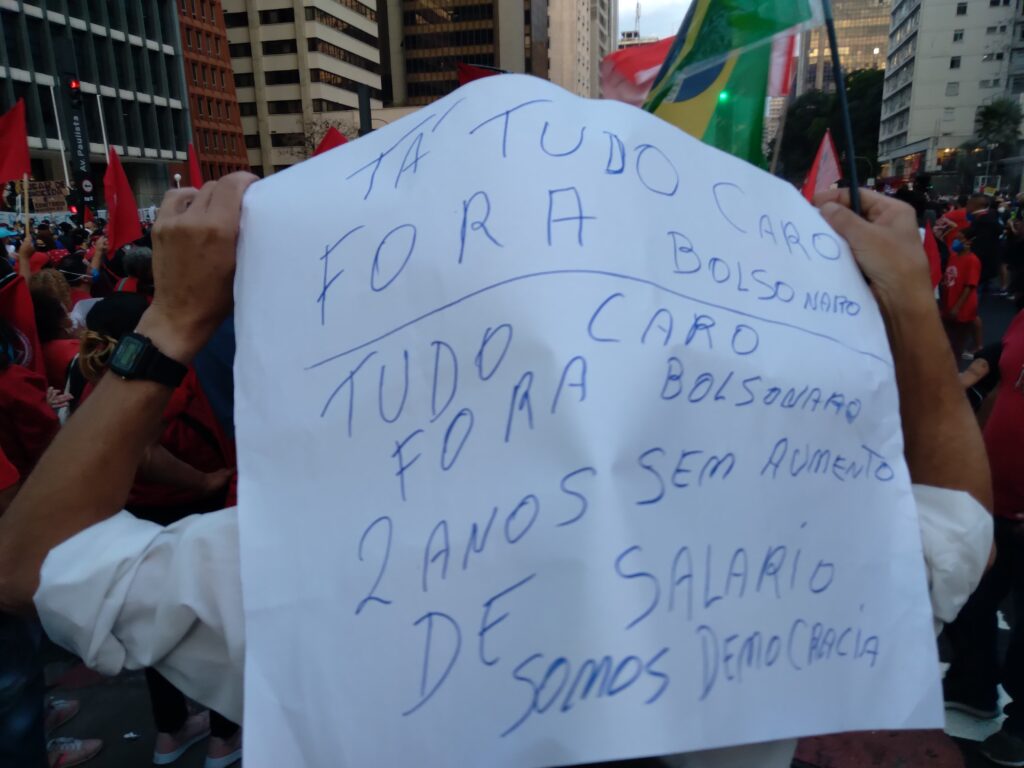 TÁ TUDO CARO
FORA BOLSONARO
TUDO CARO
FORA BOLSONARO
2 ANOS SEM AUMENTO
DE SALARIO
SOMOS DEMOCRACIA
Av Paulista